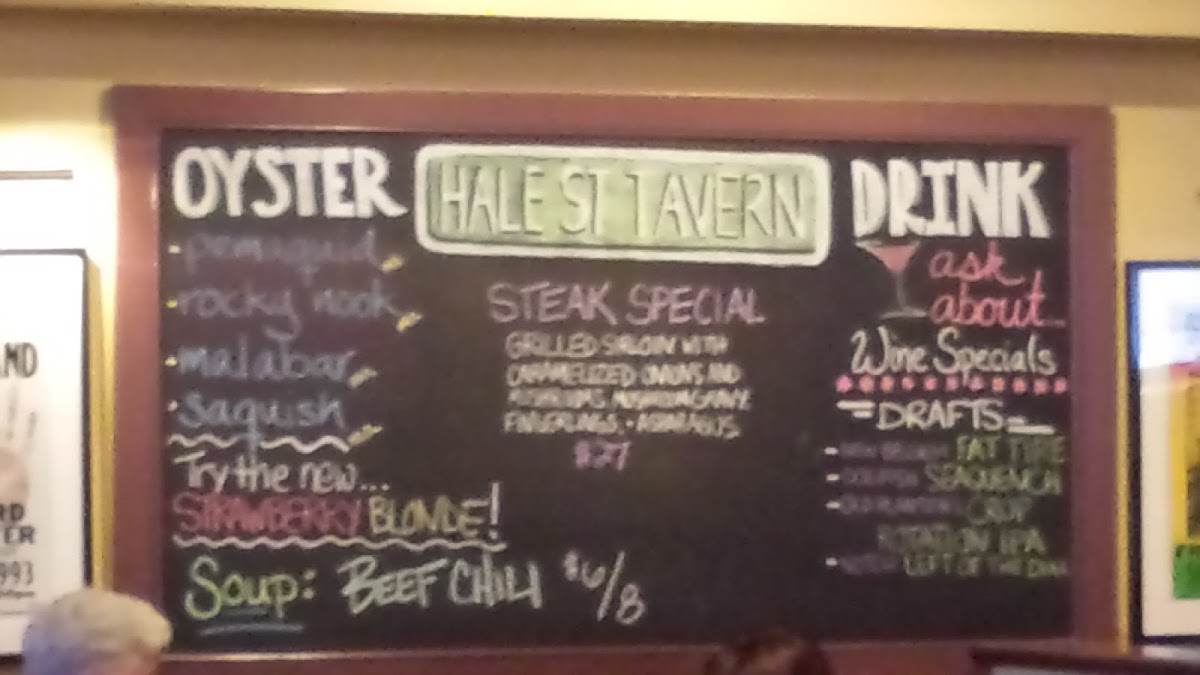 OYSTER
pemaquid
rocky nook
malabar
saquish
Try the new...
STRAWBERRY BLONDE!
Soup: BEEF CHILI $6/8
HALE ST TAVERN
STEAK SPECIAL
GRILLED SIRLOIN WITH
CARAMELIZED ONIONS AND
MUSHROOMS, MUSHROOM GRAVY
FINGERLINGS + ASPARAGUS
$27
DRINK
ask
about...
Wine Specials
DRAFTS
FAT TIRE
SEAQUENCH
CROP
ROTATION IPA
LEFT OF THE DIAL
ND
RD
TER
993